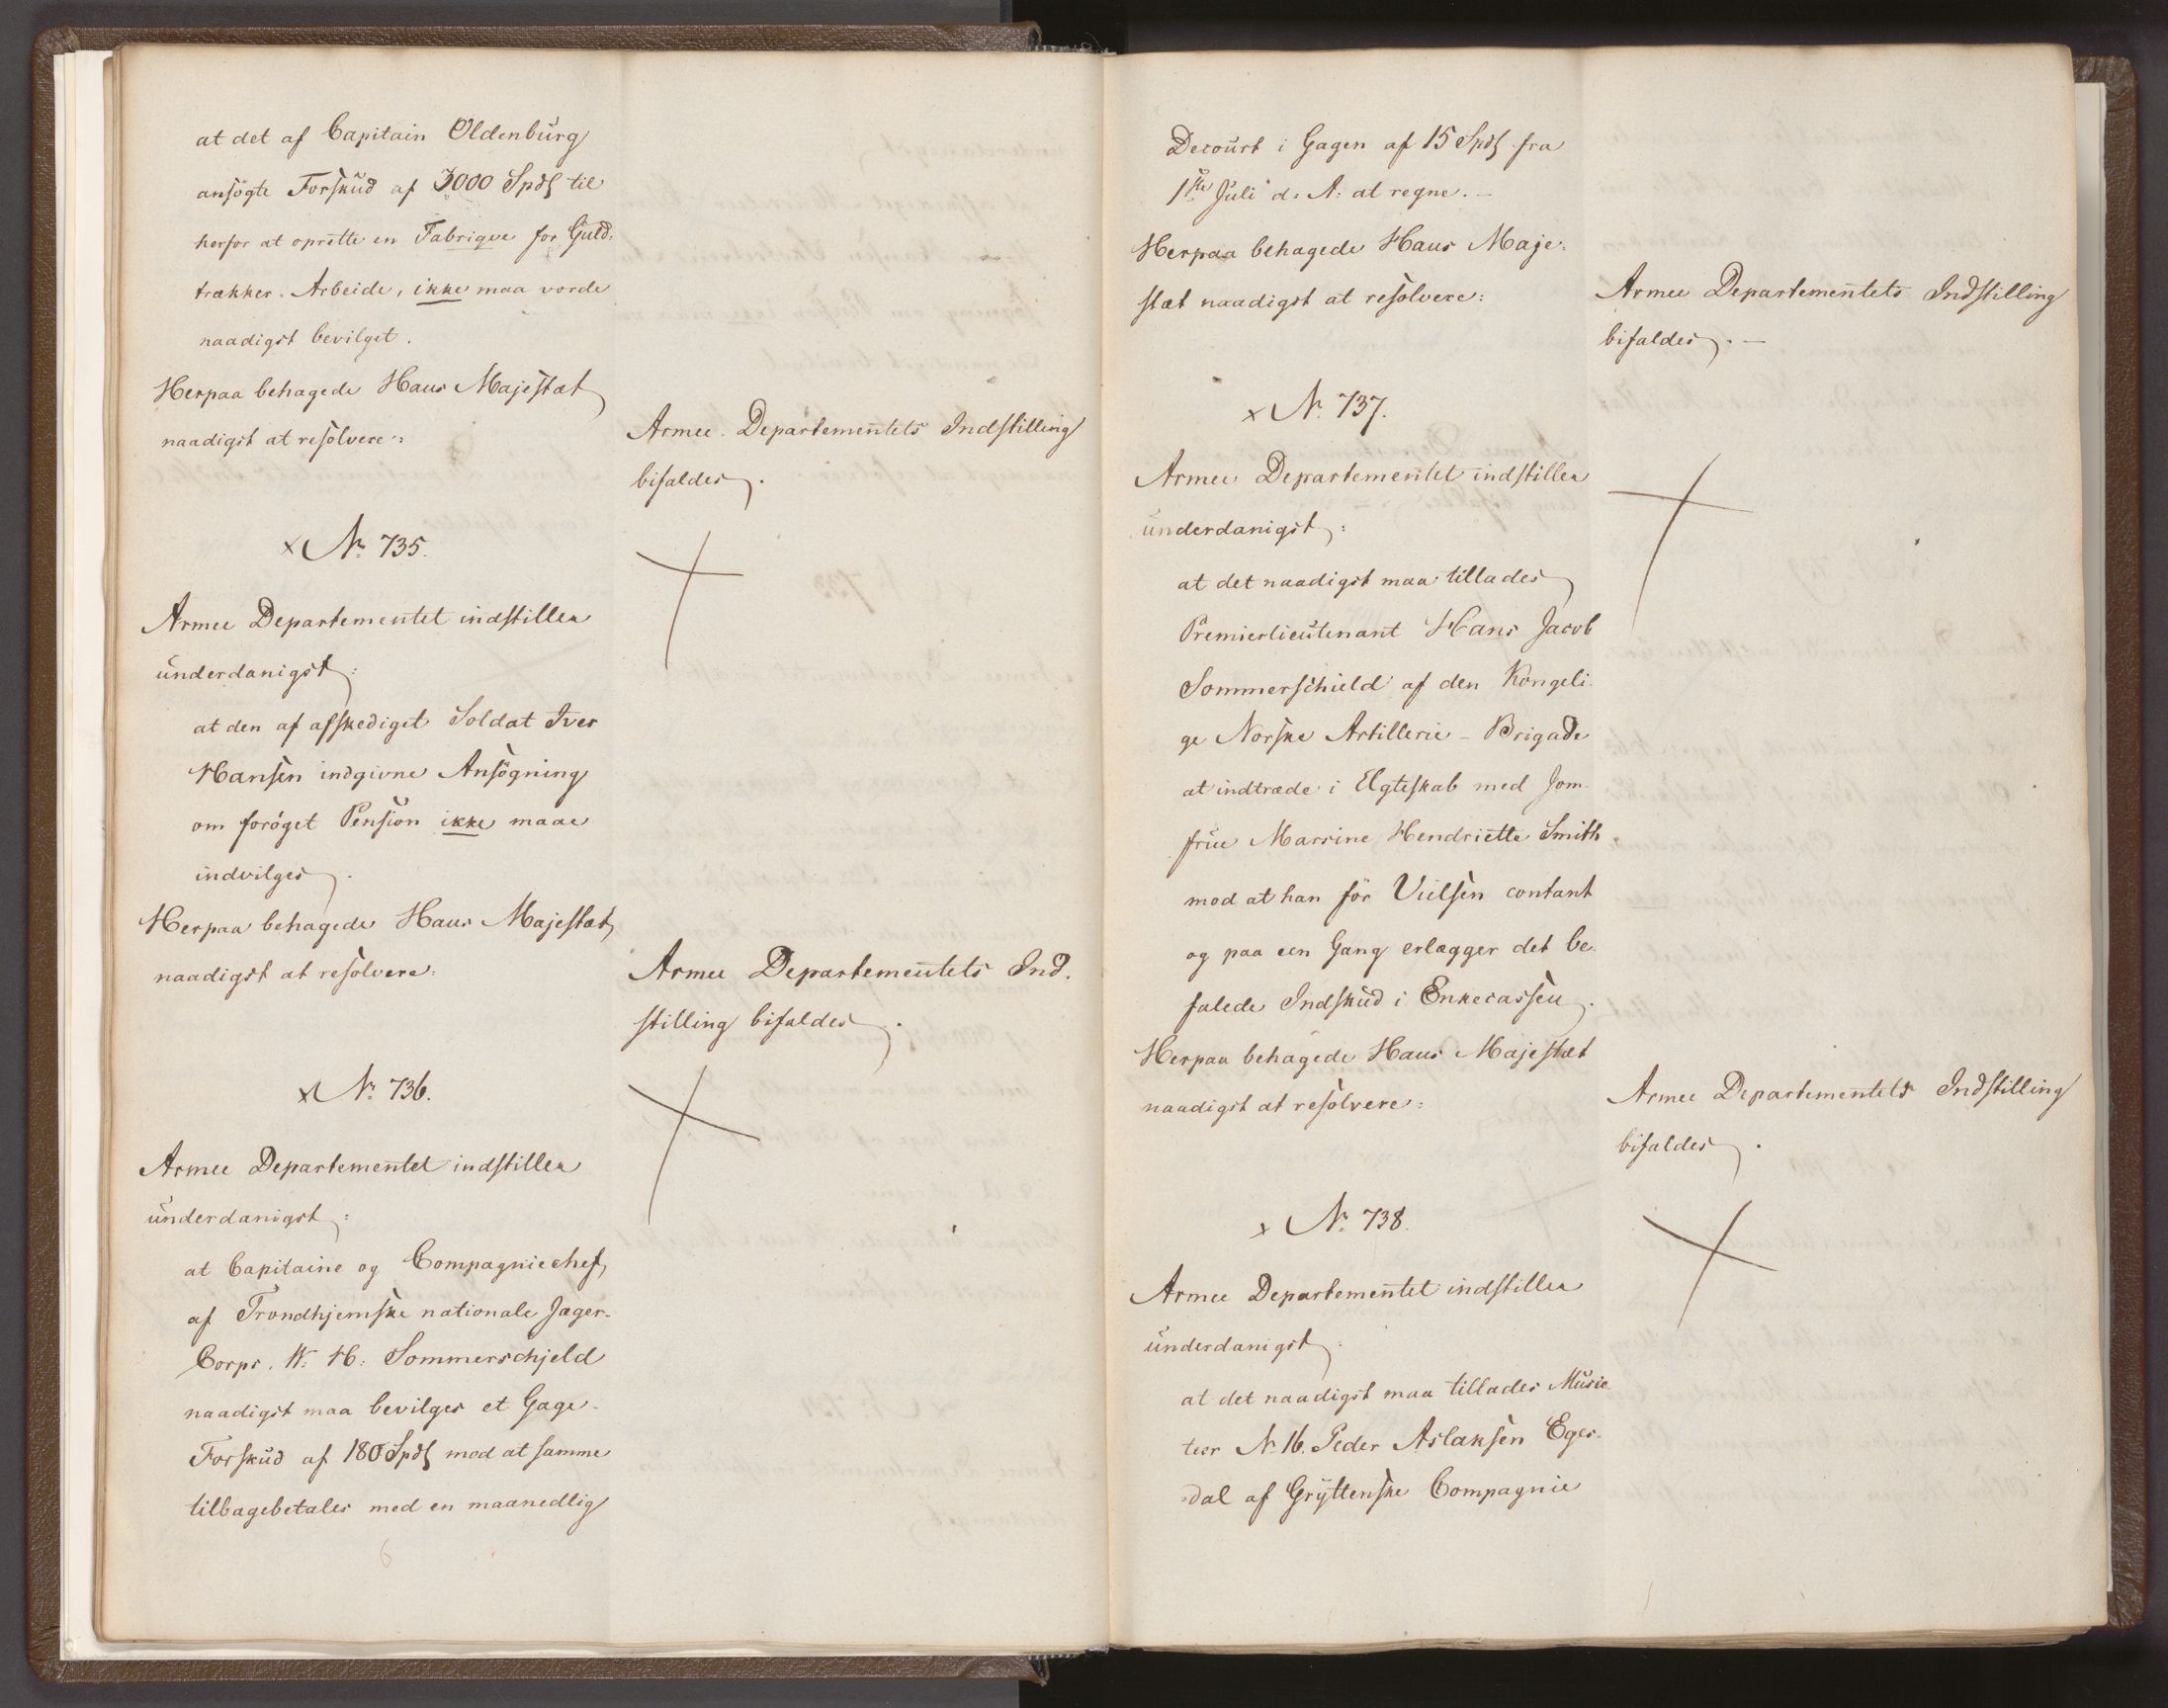 at det af Capitain Oldenburg
ansögte Forskud af 3000 Spd til
herfor at oprette en Fabrique for Guld-
trækker-Arbeide, ikke maa vorde
naadigst bevilget.
Herpaa behagede Hans Majestæt
naadigst at resolvere:
Armee-Departementets Indstilling
bifaldes.
x No 735.
Armee Departementet indstiller
underdanigst:
at den af afskediget Soldat Iver
Hansen indgivne Ansögning
om foröget Pension ikke maae
indvilges.
Herpaa behagede Hans Majestæt
naadigst at resolvere:
Armee Departementets Ind-
stilling bifaldes.
x No 736.
Armee Departementet indstiller
underdanigst:
at Capitaine og Compagniechef
af Trondhjemske nationale Jæger-
Corps. W: H: Sommerschjeld
naadigst maa bevilges et Gage-
Forskud af 180 Spd mod at samme
tilbagebetales med en maanedlig
Decourt i Gagen af 15 Spd fra
1ste Juli d: A: at regne.-
Herpaa behagede Hans Maje-
stæt naadigst at resolvere:
Armee Departementets Indstilling
bifaldes.-
x No 737.
Armee Departementet indstiller
underdanigst:
at det naadigst maa tillades
Premierlieutenant Hans Jacob
Sommerschield af den Kongeli-
ge Norske Artillerie-Brigade
at indtræde i Ægteskab med Jom-
frue Marsine Hendriette Smith
mod at han för Vielsen contant
og paa een Gang erlægger det be-
falede Indskud i Enkecassen.
Herpaa behagede Hans Majestæt
naadigst at resolvere:
Armee Departementets Indstilling
bifaldes.
x No 738.
Armee Departementet indstiller
underdanigst:
at det naadigst maa tillades Musie-
teer No 16. Peder Aslaksen Eges-
dal af Gryttenske Compagnie